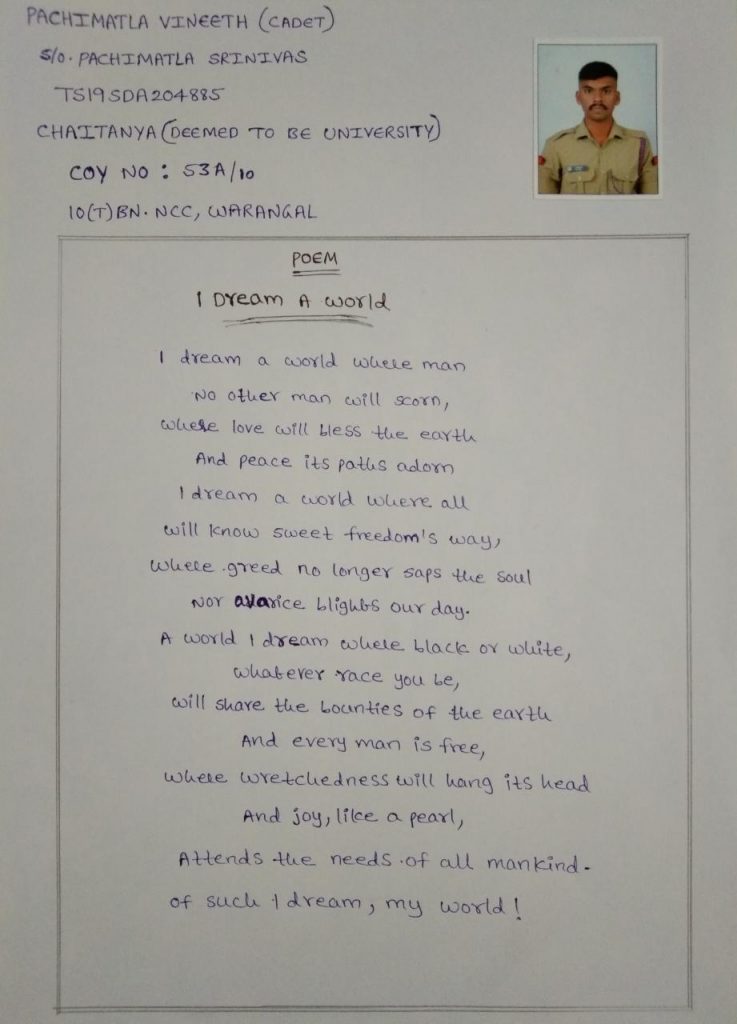 PACHIMATLA VINEETH (CADET)
S/O. PACHIMATLA SRINIVAS
TS19SDA204885
CHAITANYA (DEEMED TO BE UNIVERSITY)
COY NO : 53A/10
10(T) BN. NCC, WARANGAL
POEM
I Dream A World
I dream a world where man
No other man will scorn,
where love will bless the earth
And peace its paths adorn
I dream a world where all
will know sweet freedom's way,
where greed no longer saps the soul
Nor avarice blights our day.
A world I dream where black or white,
whatever race you be,
will share the bounties of the earth
And every man is free,
where wretchedness will hang its head
And joy, like a pearl,
Attends the needs of all mankind.
of such I dream, my world!